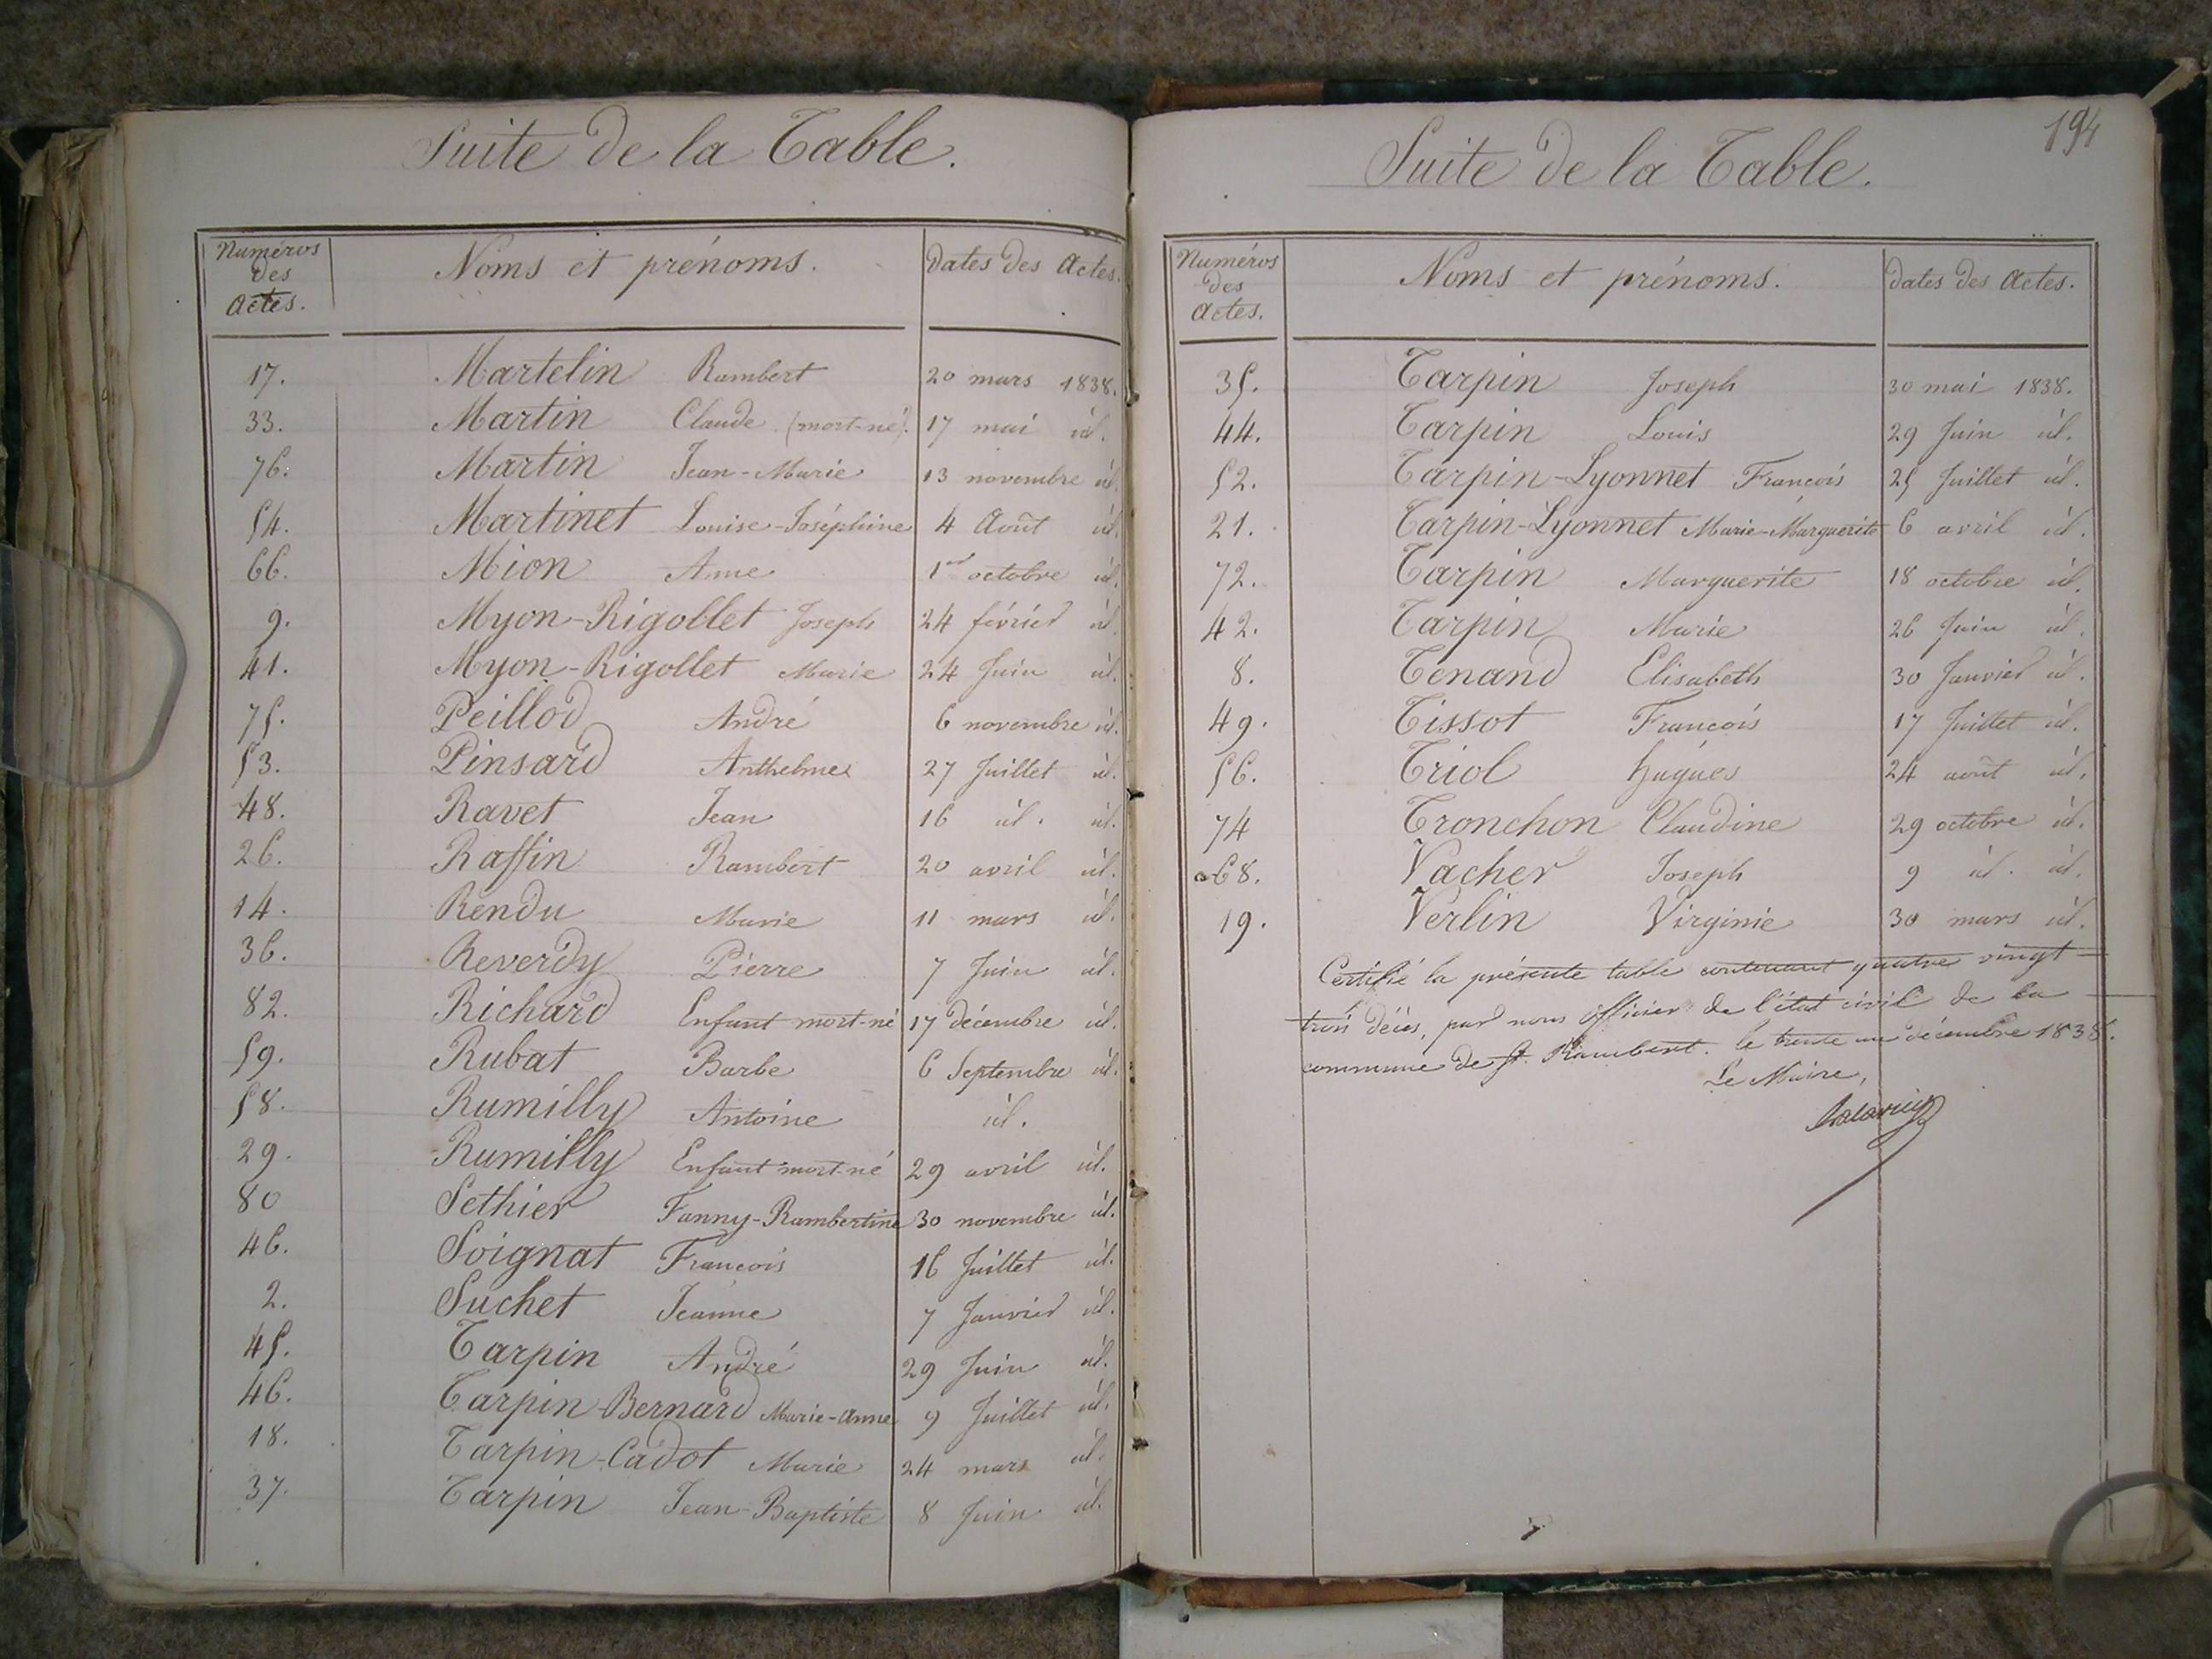 Suite de la Table.
Numéros des Actes. Noms et prénoms. Dates des Actes.
17. Martelin Rambert 20 mars 1838.
33. Martin Claude (mort-né). 17 mai id.
76. Martin Jean-Marie 13 novembre id.
54. Martinet Louise-Joséphine 4 Août id.
66. Mion Anne 1er octobre id.
9. Myon-Rigollet Joseph 24 février id.
41. Myon-Rigollet Marie 24 Juin id.
75. Peillod André 6 novembre id.
53. Pinsard Anthelme 27 Juillet id.
48. Ravet Jean 16 id. id.
26. Raffin Rambert 20 avril id.
14. Rendu Marie 11 mars id.
36. Reverdy Pierre 7 Juin id.
82. Richard Enfant mort-né 17 décembre id.
59. Rubat Barbe 6 Septembre id.
58. Rumilly Antoine id.
29. Rumilly Enfant mort-né 29 avril id.
80 Sethier Fanny-Rambertine 30 novembre id.
46. Soignat Francois 16 Juillet id.
2. Suchet Jeanne 7 Janvier id.
45. Tarpin André 29 Juin id.
46. Tarpin-Bernard Marie-Anne 9 Juillet id.
18. Tarpin-Cadot Marie 24 mars id.
37. Tarpin Jean-Baptiste 8 Juin id.
194
Suite de la Table.
Numéros des Actes. Noms et prénoms. Dates des Actes.
35. Tarpin Joseph 30 mai 1838.
44. Tarpin Louis 29 Juin id.
52. Tarpin-Lyonnet Francois 25 Juillet id.
21. Tarpin-Lyonnet Marie-Marguerite 6 avril id.
72. Tarpin Marguerite 18 octobre id.
42. Tarpin Marie 26 Juin id.
8. Tenand Elisabeth 30 Janvier id.
49. Tissot Francois 17 Juillet id.
56. Triol Hugues 24 août id.
74 Tronchon Claudine 29 octobre id.
68. Vacher Joseph 9 id. id.
19. Verlin Virginie 30 mars id.
Certifié la présente table contenant quatre vingt
trois décès, par nous officier de l'état civil de la
commune de St. Rambert. le trente un décembre 1838.
Le Maire,